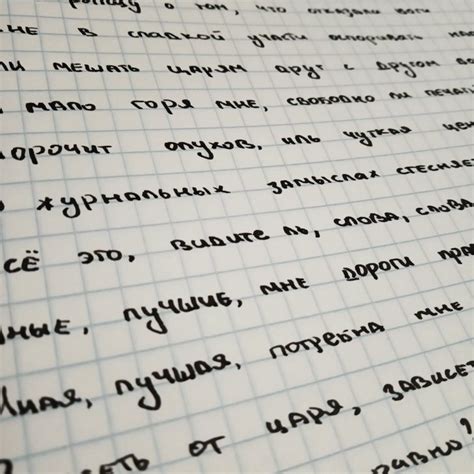 ропщу о том, что отказали боги
мне в сладкой участи оспоривать нало
ли мешать царям друг с другом во
мало горя мне, свободно ли печат
морочит олухов, иль чуткая це
журнальных замыслах стесняет
сё это, видите ль, слова, слова
ные, лучшие, мне дороги пра
Иная, лучшая, потребна мне
сеть от царя, зависет
равно?